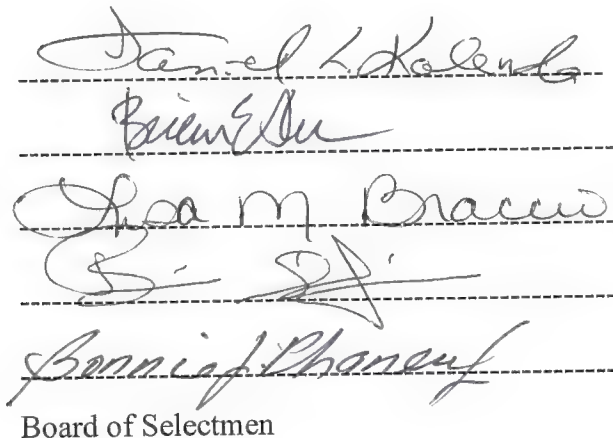 Daniel L. Kolenda
Brian E
Lisa M Braccio
Bonnie J. Phaneuf
Board of Selectmen